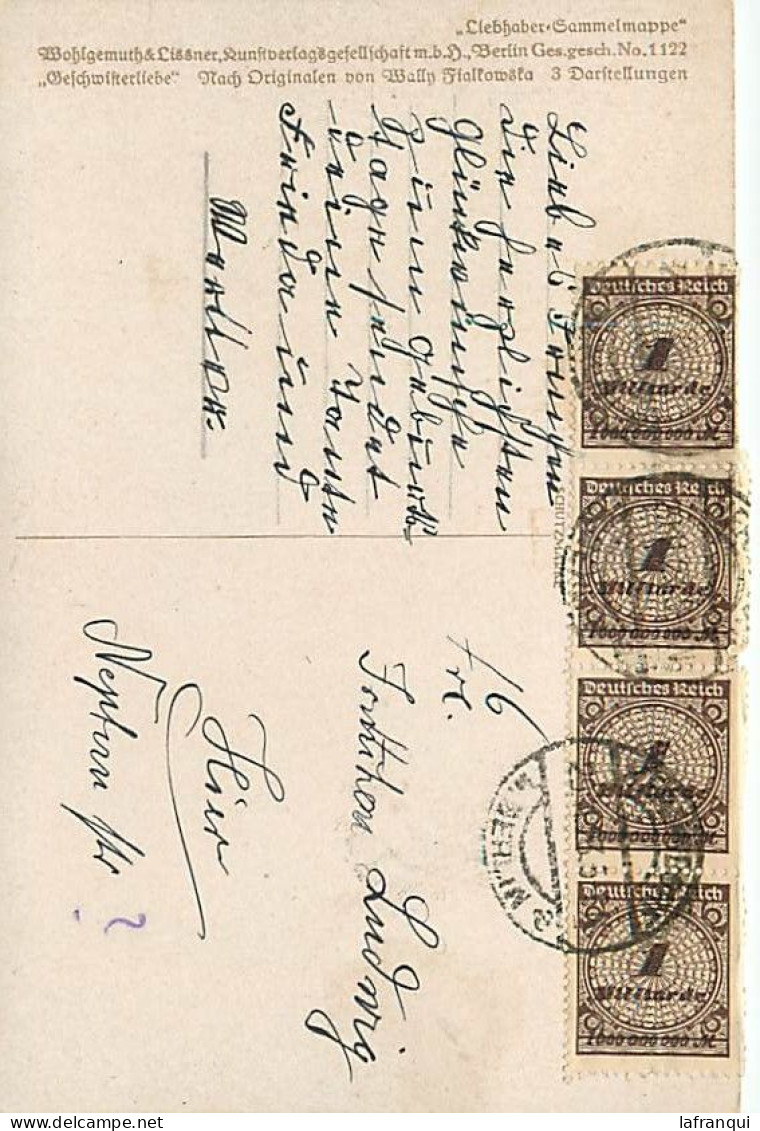 „Liebhaber-Sammelmappe“
Wohlgemuth & Lissner, Kunstverlagsgesellschaft m.b.H., Berlin Ges. gesch. No. 1122
„Geschwisterliebe“ Nach Originalen von Wally Fialkowska 3 Darstellungen
Liebes
die herzlichsten
Glückwünsche
zum Geburts
tage sendet
deine Tante
Frieda und
Walter.
Frl.
Ludwig
Hier
Neptun str ?
SCHUTZMARKE
Deutsches Reich
1
Milliarde
1000 000 000 M
Deutsches Reich
1
Milliarde
1000 000 000 M
Deutsches Reich
1
Milliarde
1000 000 000 M
Deutsches Reich
1
Milliarde
1000 000 000 M
BERLIN
lafranqui
© delcampe.net